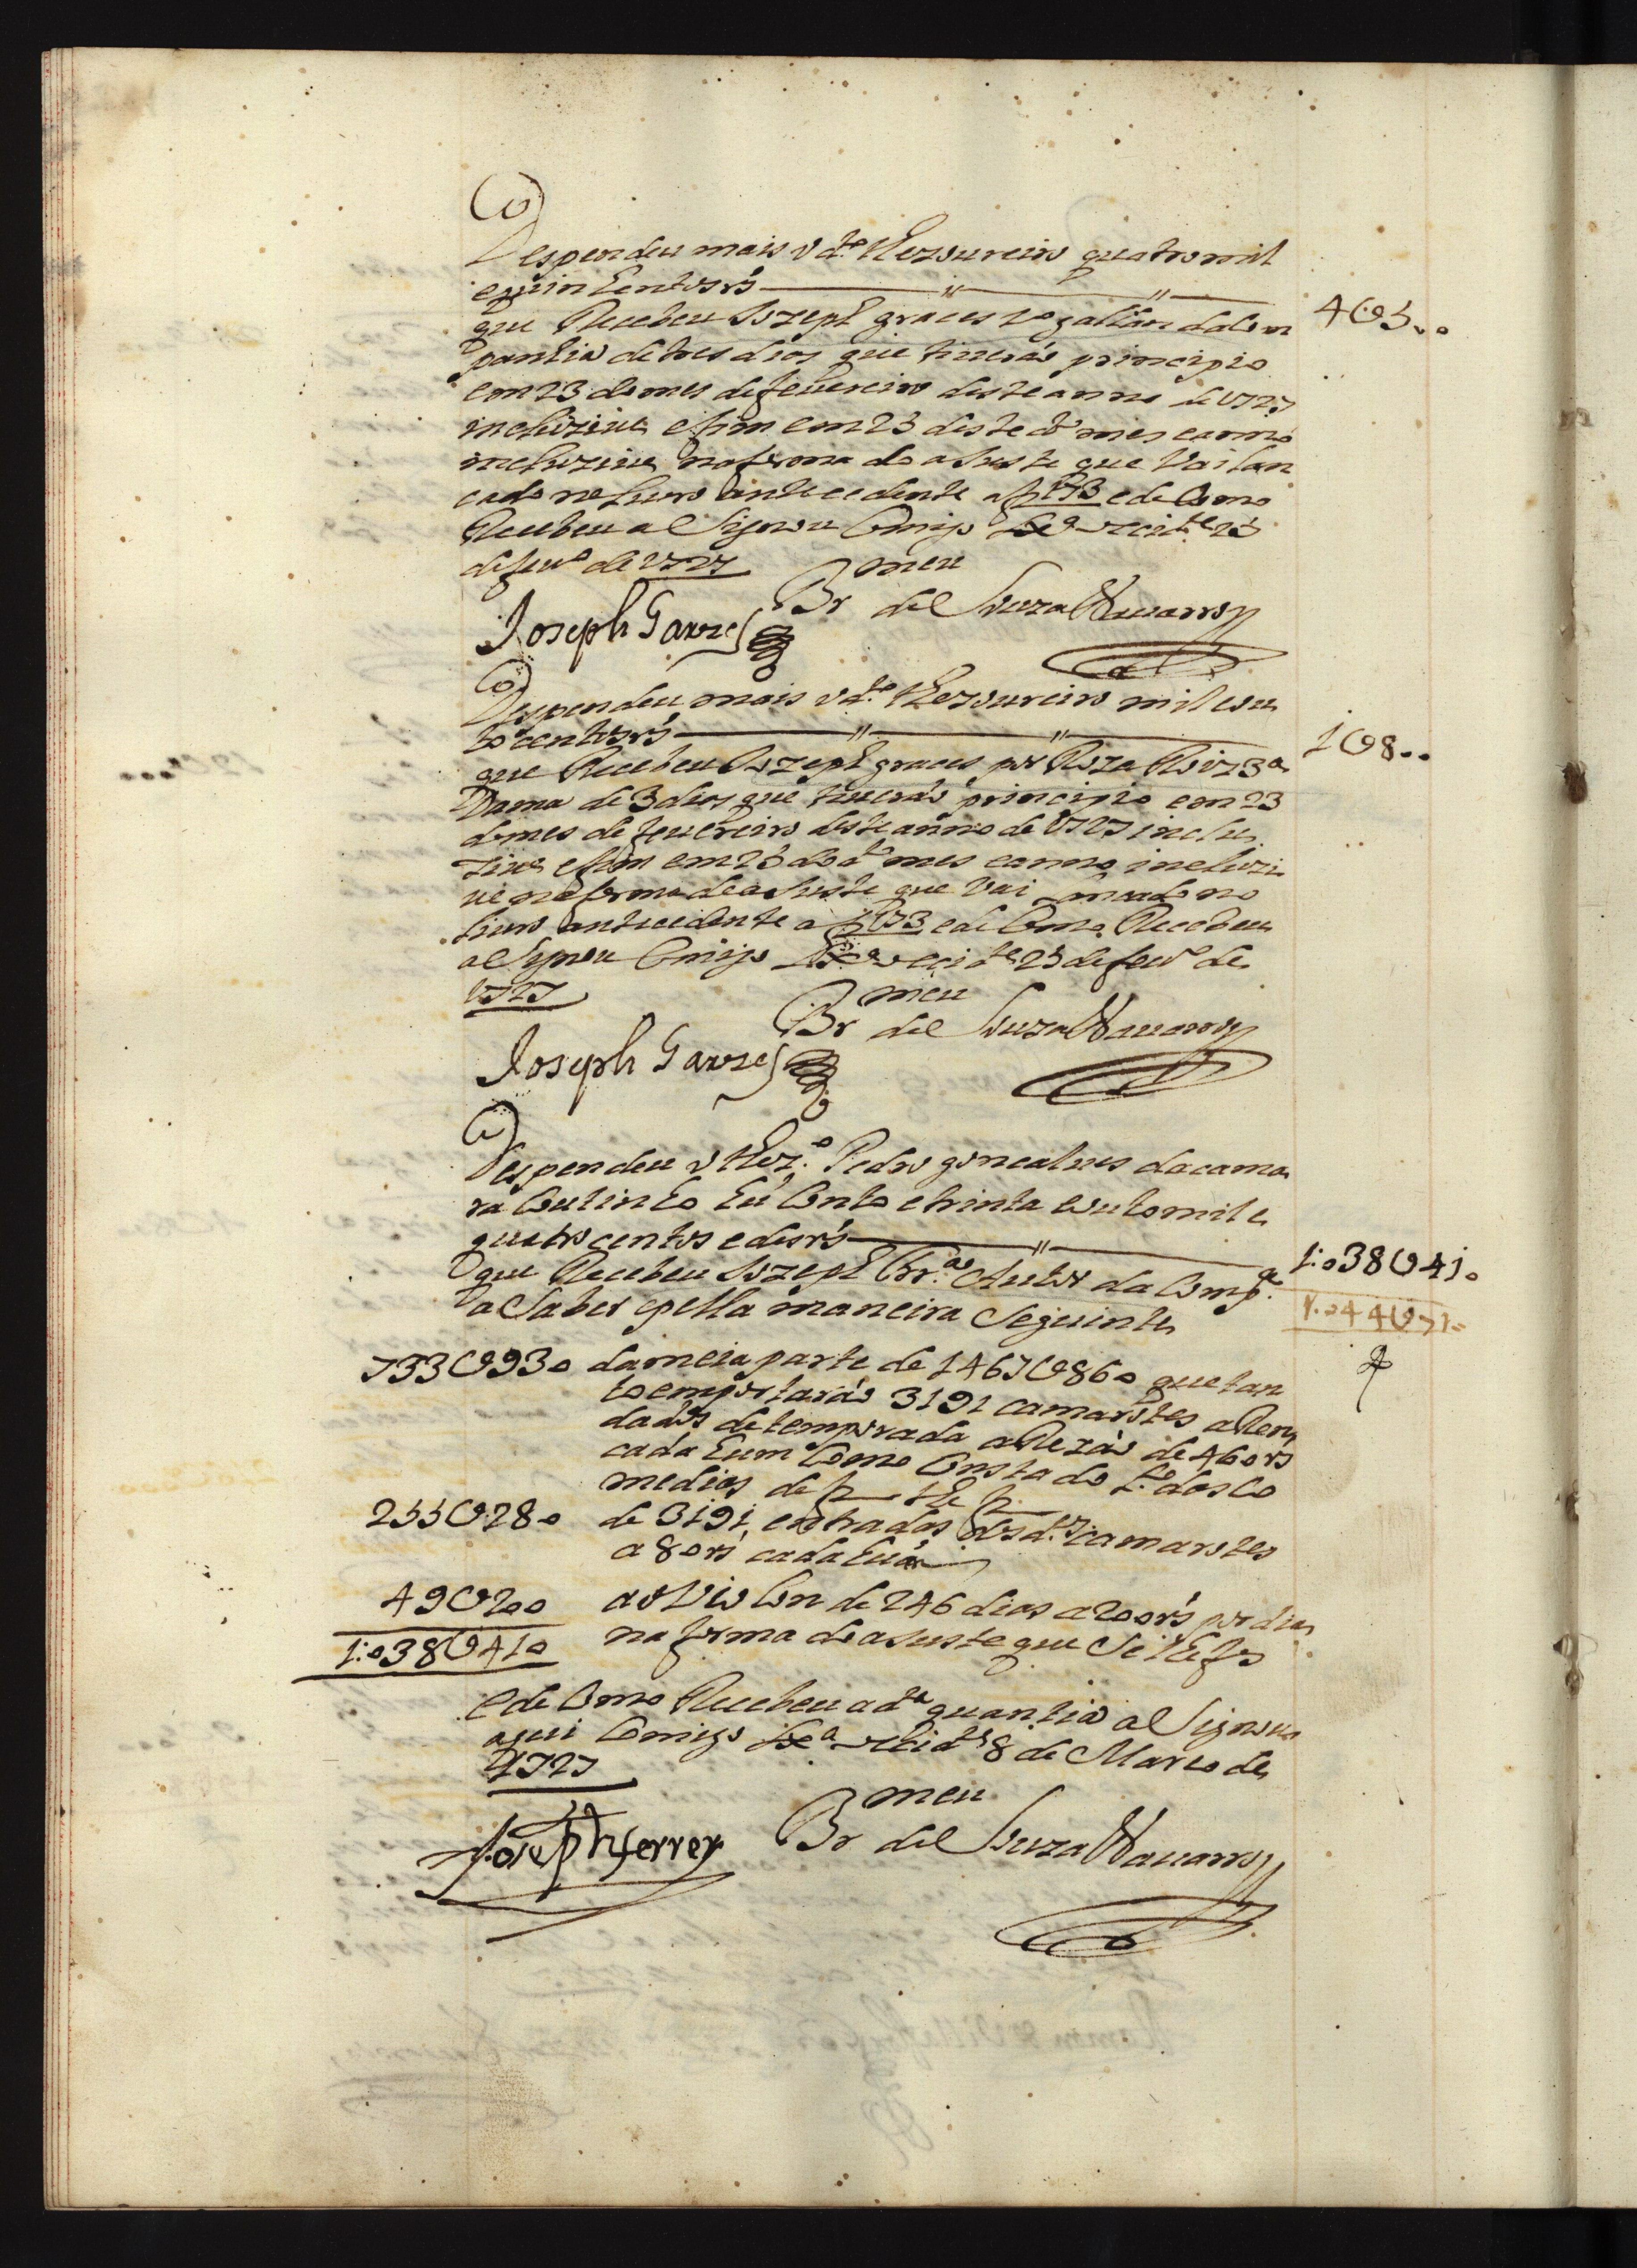 Despendeu mais o d.to thezoureiro quatro mil
e quinhentos rs — 4U500
que Recebeu Jozeph graces 1º gallán da Com
panhia de tres dias que tiuerão principio
em 23 do mes de feuereiro deste anno de 1727
incluziue e fim em 25 deste d.º mes e anno
incluziue na forma do ajuste que Vai lan
cado no liuro antecedente a f 173 e de Como
Recebeu aSignou Comigo Lx.ª occid.tal 25
de feu.º de 1727
Joseph Garzes
Br.meu de Souza Nauarro
Despendeu mais o d.to thezoureiro mil e ou
to centos rs — 1U800
que Recebeu Jozeph graces por Roza Roiz 3ª
Dama de 3 dias que tiuerão principio em 23
do mes de feuereiro deste anno de 1727 inclu
ziue e fim em 25 do d.to mes e anno incluzi
ue na forma do ajuste que Vai lancado no
liuro antecedente a f 173 e de Como Recebeu
aSignou Comigo Lx.ª occid.tal 25 de feu.º de
1727
Joseph Garzes
Br.meu de Souza Nauarro
Despendeu o thez.º Pedro goncalues da cama
ra Coutinho hũ Conto e trinta e outo mil e
quatro centos e des rs — 1:038U410
que Recebeu Jozeph Frr.ª Autor da Comp.ª
a Saber e pella maneira Seguinte
1:044U710
733U930 da meia parte de 1467U860 que tan
to emportarão 3191 camarotes aRen
dados de temporada aRezão de 460 rs
cada hum Como Consta do L.º dos Co
medios de f the f
255U280 de 3191 entradas dos d.os camarotes
a 80 rs cada hũa
49U200 de 246 dias a 200 rs por dia
na forma do ajuste que Se lhe fes
1:038U410
e de Como Recebeu a d.ta quantia aSignou
aqui Comigo Lx.ª occid.tal 8 de Marco de
1727
Joseph ferrer
Br.meu de Souza Nauarro